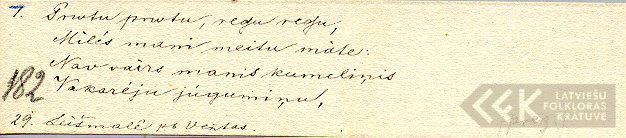 1. Protu protu, redzu redzu,
Mīlēs mani meitu māte:
Nav vairs manis kumeliņis
182
Vakarēju jūgumiņu,
29. Leišmalē pb Ventas.
LATVIEŠU
FOLKLORAS
KRĀTUVE